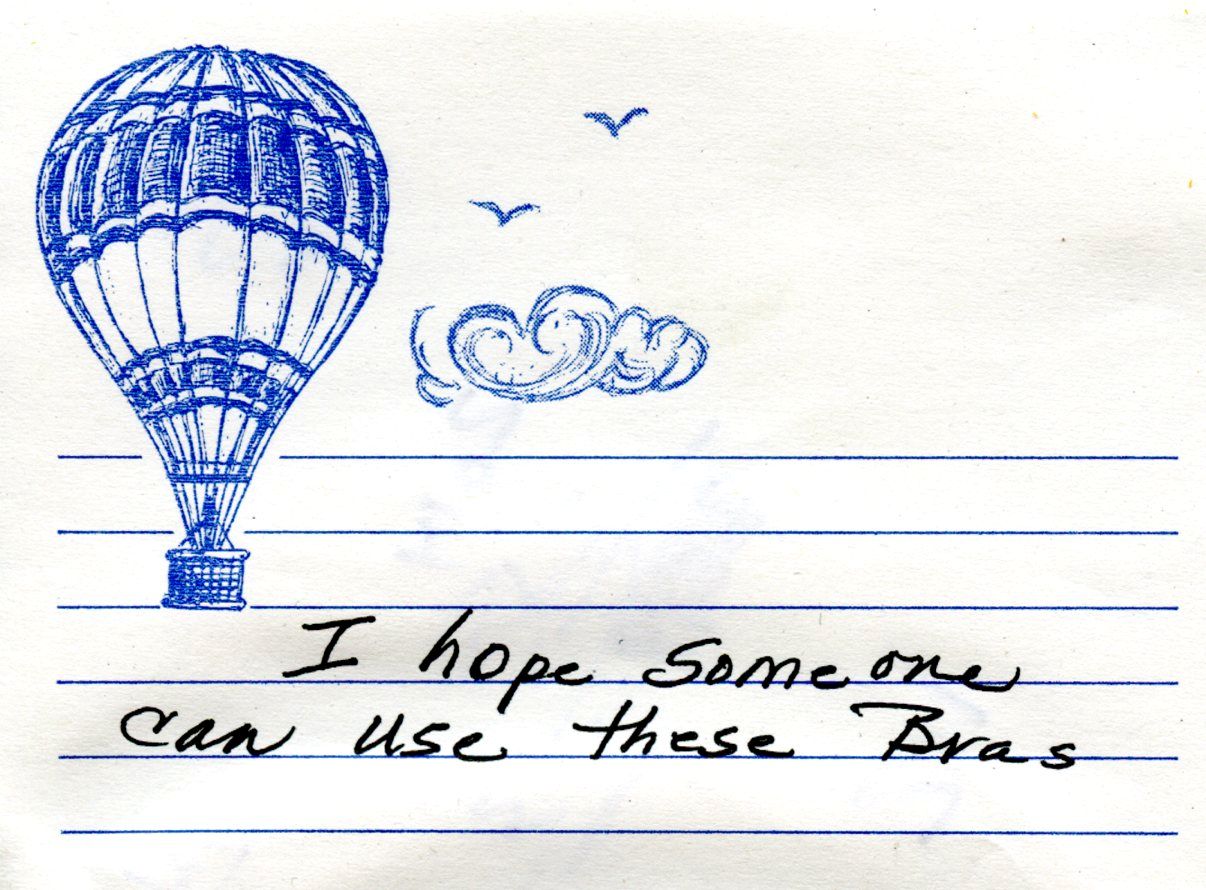 I hope someone
can use these Bras